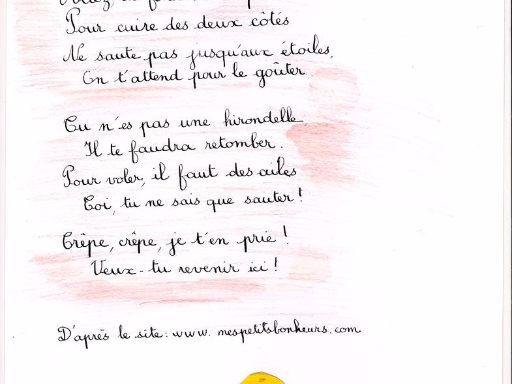 Pour cuire des deux côtés
Ne saute pas jusqu'aux étoiles,
On t'attend pour le goûter.
Tu n'es pas une hirondelle
Il te faudra retomber.
Pour voler, il faut des ailes
Toi, tu ne sais que sauter !
Crêpe, crêpe, je t'en prie !
Veux-tu revenir ici !
D'après le site : www. mespetitsbonheurs. com